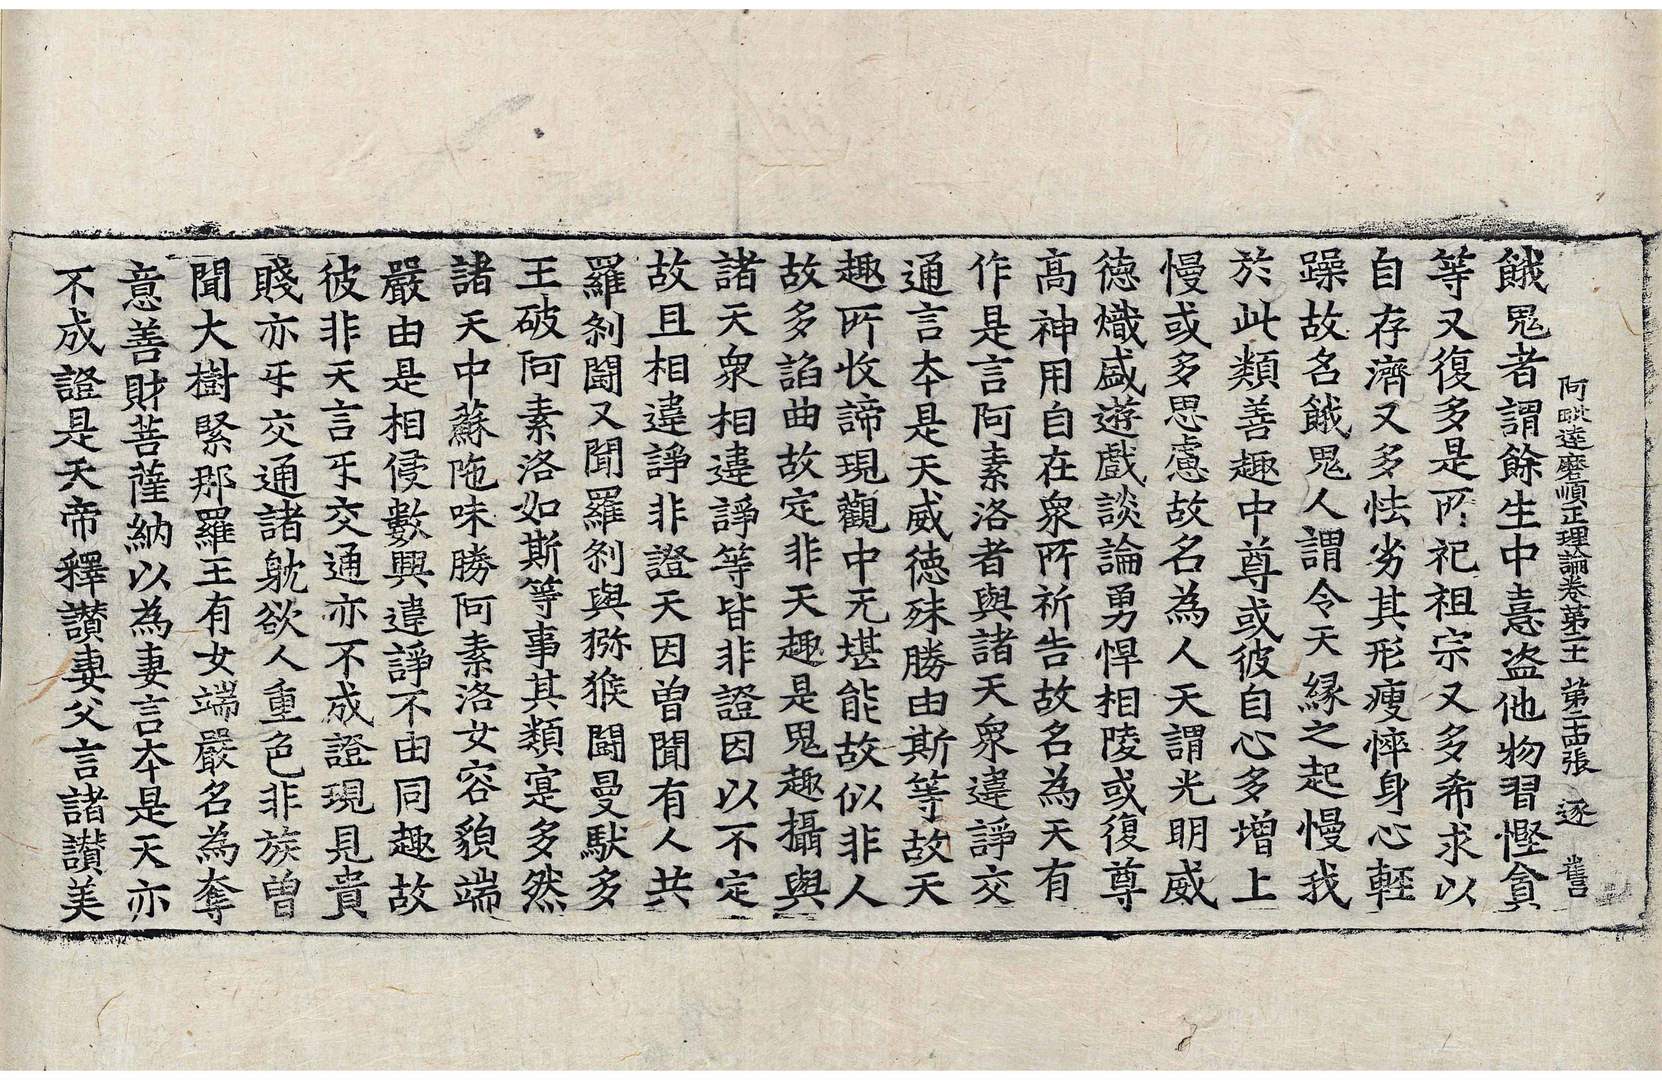 阿毗達磨順正理論卷第二十一 第二十四張 逐
餓鬼者謂餘生中憙盜他物習慳貪
等又復多是所祀祖宗又多希求以
自存濟又多怯劣其形瘦悴身心輕
躁故名餓鬼人謂令天緣之起慢我
於此類善趣中尊或彼自心多增上
慢或多思慮故名為人天謂光明威
德熾盛遊戲談論勇悍相陵或復尊
高神用自在衆所祈告故名為天有
作是言阿素洛者與諸天衆違諍交
通言本是天威德殊勝由斯等故天
趣所收諦現觀中无堪能故似非人
故多諂曲故定非天趣是鬼趣攝與
諸天衆相違諍等皆非證因以不定
故且相違諍非證天因曾聞有人共
羅剎鬪又聞羅剎與獼猴鬪曼馱多
王破阿素洛如斯等事其類寔多然
諸天中蘇陁味勝阿素洛女容貌端
嚴由是相侵數興違諍不由同趣故
彼非天言㸦交通亦不成證現見貴
賤亦㸦交通諸躭欲人重色非族曾
聞大樹緊那羅王有女端嚴名為奪
意善財菩薩納以為妻言本是天亦
不成證是天帝釋讃妻父言諸讃美